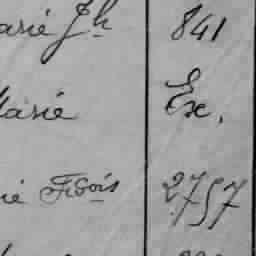 arie Jh 841
Marie Ex.
ie Fçois 2757